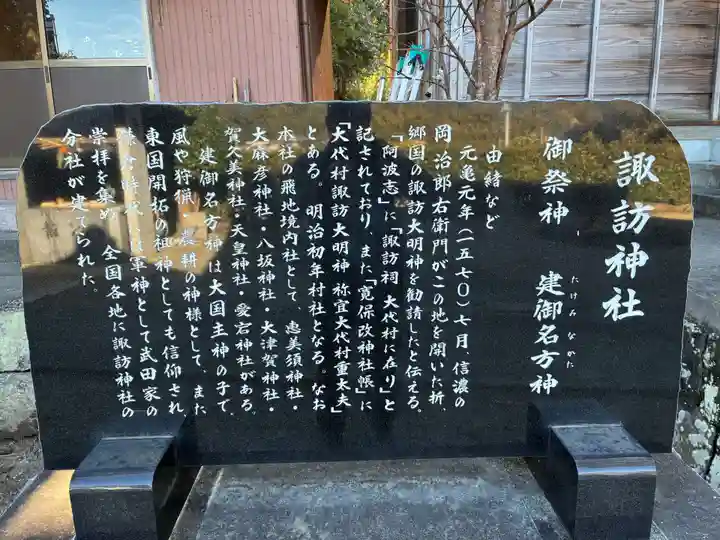 諏訪神社
御祭神 建御名方神
たけみ なかた
由緒など
元亀元年(一五七〇)七月、信濃の
岡治郎右衛門がこの地を開いた折、
郷国の諏訪大明神を勧請したと伝える。
「阿波志」に「諏訪祠 大代村に在り」と
記されており、また「寛保改神社帳」に
「大代村諏訪大明神 祢宜大代村重太夫」
とある。明治初年村社となる。なお
本社の飛地境内社として、恵美須神社・
大麻彦神社・八坂神社・大津賀神社・
賀久美神社・天皇神社・愛宕神社がある。
建御名方神は大国主神の子で、
風や狩猟・農耕の神様として、また
東国開拓の祖神としても信仰され、
軍神として武田家の
崇拝を集め、全国各地に諏訪神社の
分社が建てられた。